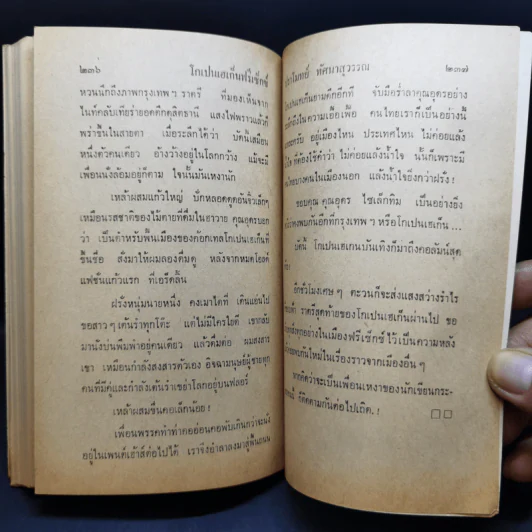 ๒๓๖ โกเปนเฮเก็นฟรีเซ็กซ์
หวนนึกถึงภาพกรุงเทพ ฯ ราตรี ที่มองเห็นจาก
ไนท์คลับเทียร่ายอดตึกดุสิตธานี แสงไฟพราวแล้วก็
พร่าขึ้นในสายตา เมื่อระลึกได้ว่า บัดนี้เสมือน
หนึ่งตัวคนเดียว อ้างว้างอยู่ในโลกกว้าง แม้จะมี
เพื่อนนั่งล้อมอยู่ก็ตาม ใจนั้นมันเหงานัก
เหล้าผสมแก้วใหญ่
เหมือนรสชาติของไม้ตายที่ดื่มในฮาวาย คุณอุดรบอก
ว่า เป็นตำหรับพื้นเมืองของค๊อกเทลโกเปนเฮเก็นที่
ขึ้นชื่อ สั่งมาให้ผมลองดื่มดู หลังจากหมดโอลด์
แฟชั่นแก้วแรก ที่เอรีคลั้น
ฝรั่งหนุ่มนายหนึ่ง คงเมาได้ที่ เดินแอ่นไป
ขอสาว ๆ เต้นรำทุกโต๊ะ แต่ไม่มีใครไยดี เขากลับ
มานั่งบ่นพึมพำอยู่คนเดียว แล้วดื่มต่อ ผมสงสาร
เขา เหมือนกำลังสงสารตัวเอง อิจฉามนุษย์ผู้ชายทุก
คนที่มีคู่และกำลังเต้นรำเขย่าโลกอยู่บนฟลอร์
เหล้าผสมชื่นคอเล็กน้อย !
เพื่อนพรรคท้าท่าคออ่อนคอพับเกินกว่าจะนั่ง
อยู่ในเพนต์เฮ้าส์ต่อไปได้ เราจึงอำลาลงมาสู่พื้นถนน
ปราโมทย์ ทัศนาสุวรรณ ๒๓๗
โกเปนเฮเก็นยามดึกอีกที จับมือร่ำลาคุณอุดรอย่าง
ซาบซึ้งในความเอื้อเฟื้อ คนไทยเราก็เป็นอย่างนี้
แหละครับ อยู่เมืองไหน ประเทศไหน ไม่ค่อยแล้ง
ที่ต้องใช้คำว่า ไม่ค่อยแล้งน้ำใจ นั้นก็เพราะมี
คนไทยบางคนในเมืองนอก แล้งน้ำใจยิ่งกว่าฝรั่ง !
ขอบคุณ คุณอุดร ไชเล็กทิม เป็นอย่างยิ่ง
พบกันอีกที่กรุงเทพ ฯ หรือโกเปนเฮเก็น...
บัดนี้ โกเปนเฮเกนบันเทิงก็มาถึงคอลัมน์สุด
อีกชั่วโมงเศษ ๆ ตะวันก็จะส่งแสงสว่างรำไร
ราตรีสุดท้ายของโกเปนเฮเก็นผ่านไป ขอ
ทุกอย่างในเมืองฟรีเซ็กซ์ไว้เป็นความหลัง
พบกันใหม่ในเรื่องราวจากเมืองอื่น ๆ
หากคิดว่าจะเป็นเพื่อนเหงาของนักเขียนกระ-
ก็ติดตามกันต่อไปเถิด. ! □□